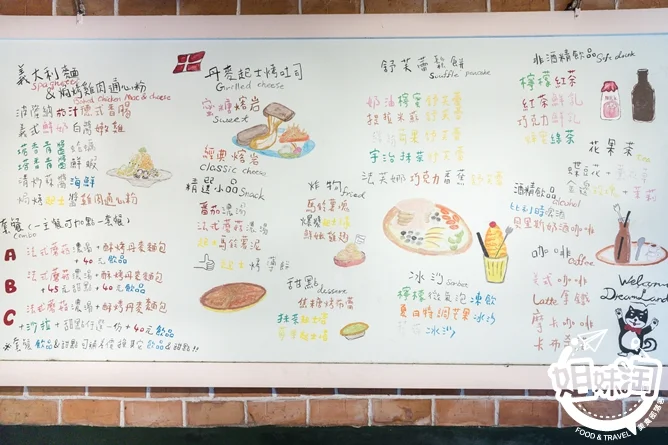 義大利麵
spaghetti
& 焗烤雞肉通心粉
Baked Chicken Mac & cheese
義式鮮奶白醬嫩雞
塔香青醬蛤蜊
塔香青醬鮮蝦
清炒蒜片海鮮
焗烤起士醬雞肉通心粉
套餐(一主餐可加點一套餐)
combo
A 法式蘑菇濃湯+酥烤丹麥麵包
+40元飲品
B 法式蘑菇濃湯+酥烤丹麥麵包
+45元甜點+40元飲品
C 法式蘑菇濃湯+酥烤丹麥麵包
+沙拉+甜點任選一份+40元飲品
丹麥起士烤吐司
Grilled cheese
蜜糖熔岩
Sweet
經典熔岩
classic cheese
精選小品 Snack
蕃茄濃湯
法式蘑菇濃湯
起士馬鈴薯泥
起士烤薄餅
炸物 fried
馬鈴薯塊
鮮嫩雞翅
甜點 dessert
焦糖烤布蕾
抹茶起士塔
舒芙蕾鬆餅
Souffle pancake
奶油檸檬舒芙蕾
提拉米蘇舒芙蕾
宇治抹茶舒芙蕾
法芙娜巧克力香蕉舒芙蕾
冰沙 Sorbet
檸檬微氣泡凍飲
夏日特調芒果冰沙
冰沙
非酒精飲品 Soft drink
檸檬紅茶
紅茶鮮乳
巧克力鮮乳
綠茶
花果茶 Tea
酒精飲品 alcohol
比利時啤酒
貝里斯奶酒咖啡
咖啡 Coffee
美式咖啡
Latte 拿鐵
摩卡咖啡
卡布
Welcome
Dreamland
姐妹淘
FOOD & TRAVEL